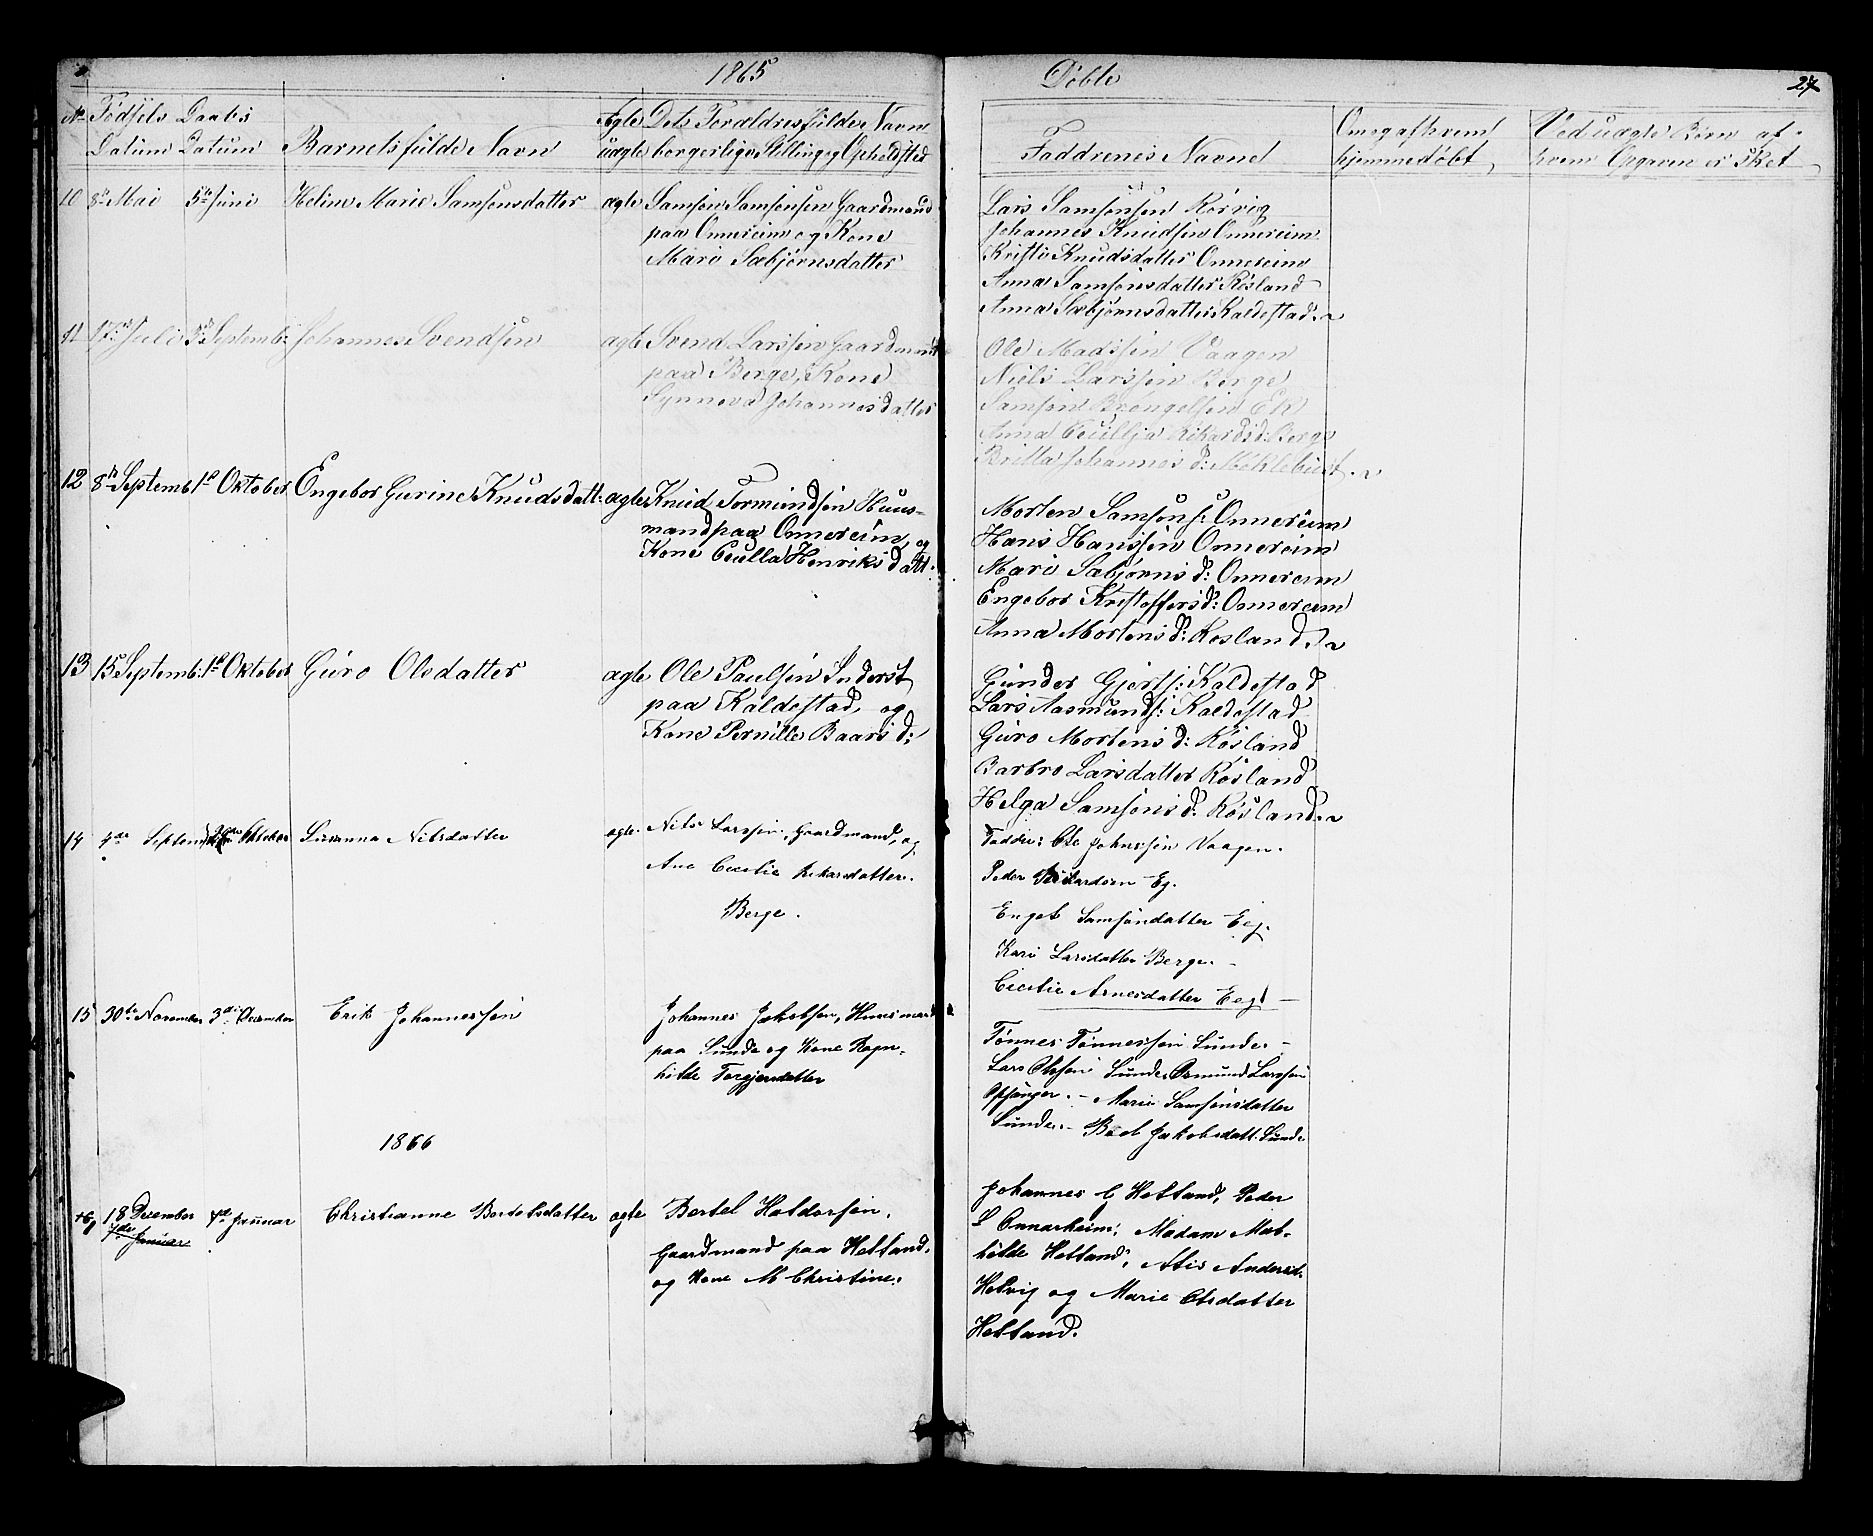 1865 Döbte 27
No Födsels Datum Daabs Datum Barnets fulde Navn Ægte uægte Dets Forældres fulde Navn borgerlige Stilling og Opholdsted Faddrenes Navne Om og af hvem hjemmedöbt Ved uægte Börn af hvem Opgaven er sket
10 8de Mai 5te Juni Heline Marie Samsonsdatter ægte Samson Samsonsen Gaardmand
paa Onnereim og Kone
Mari Sæbjørnsdatter
Lars Samsonsen Rörvig
Johannes Knudsen Onnereim
Kristi Knudsdatter Onnereim
Anna Samsonsdatter Røsland
Anna Sæbjørnsdatter Kaldestad.
11 17de Juli 3de Septemb: Johannes Svendsen ægte Svend Larssen Gaardmand
paa Berge, Kone
Synneva Johannesdatter
Ole Madssen Vaagen
Niels Larssen Berge
Samson Brengelsen Ek
Anna Cecillja Rikardsd: Berge
Britta Johannes d: Møklebust.
12 8de Septemb 1ste Oktober Engebor Gurine Knudsdatt: ægte Knud Tormundsen Huus-
mand paa Onnereim og
Kone Cecilla Henriksdatt:
Morten Samsons: Onnereim
Hans Hanssen Onnereim
Mari Sæbjørns d: Onnereim
Engebor Kristoffersd: Onnereim
Anna Mortens d: Røsland.
13 15 Septemb: 1ste Oktober Guro Olsdatter ægte Ole Paulsen Inderst
paa Kaldestad, og
Kone Pernille Baars d:
Gunder Gjerts: Kaldestad
Lars Aasmunds: Kaldestad
Guro Mortens d: Røsland
Barbro Larsdatter Røsland
Helga Samsons d: Røsland.
14 4de September Oktober Susanna Nilsdatter ægte. Nils Larssen, Gaardmand, og
Ane Cecilie Rikarsdatter.
Berge.
Faddre: Ole Johnssen Vaagen.
Peder Rikardsen Eg.
Engeb Samsonsdatter Eeg.
Kari Larsdatter Berge. –
Cecilie Arnesdatter Eeg –
15 30te November 3die December Erik Johannessen Johannes Jakobsen, Huusmand
paa Sunde og Kone Ragn-
hilde Torgjersdatter
Tønnes Tønnessen Sunde –
Lars Olssen Sunde, Osmund Larssen
Opsanger. – Marie Samsonsdatter
Sunde. – Boel Jakobsdatt: Sunde
1866
18 December
7de Januar 7de Januar Christianne Bertelsdatter ægte Bertel Haldorsen.
Gaardmand paa Helland.
og Kone M Christine.
Johannes C Helland, Peder
L Onnarheim, Madam Mat-
hilde Helland, Atis Andersd.
Helvig og Marie Olsdatter
Helland.